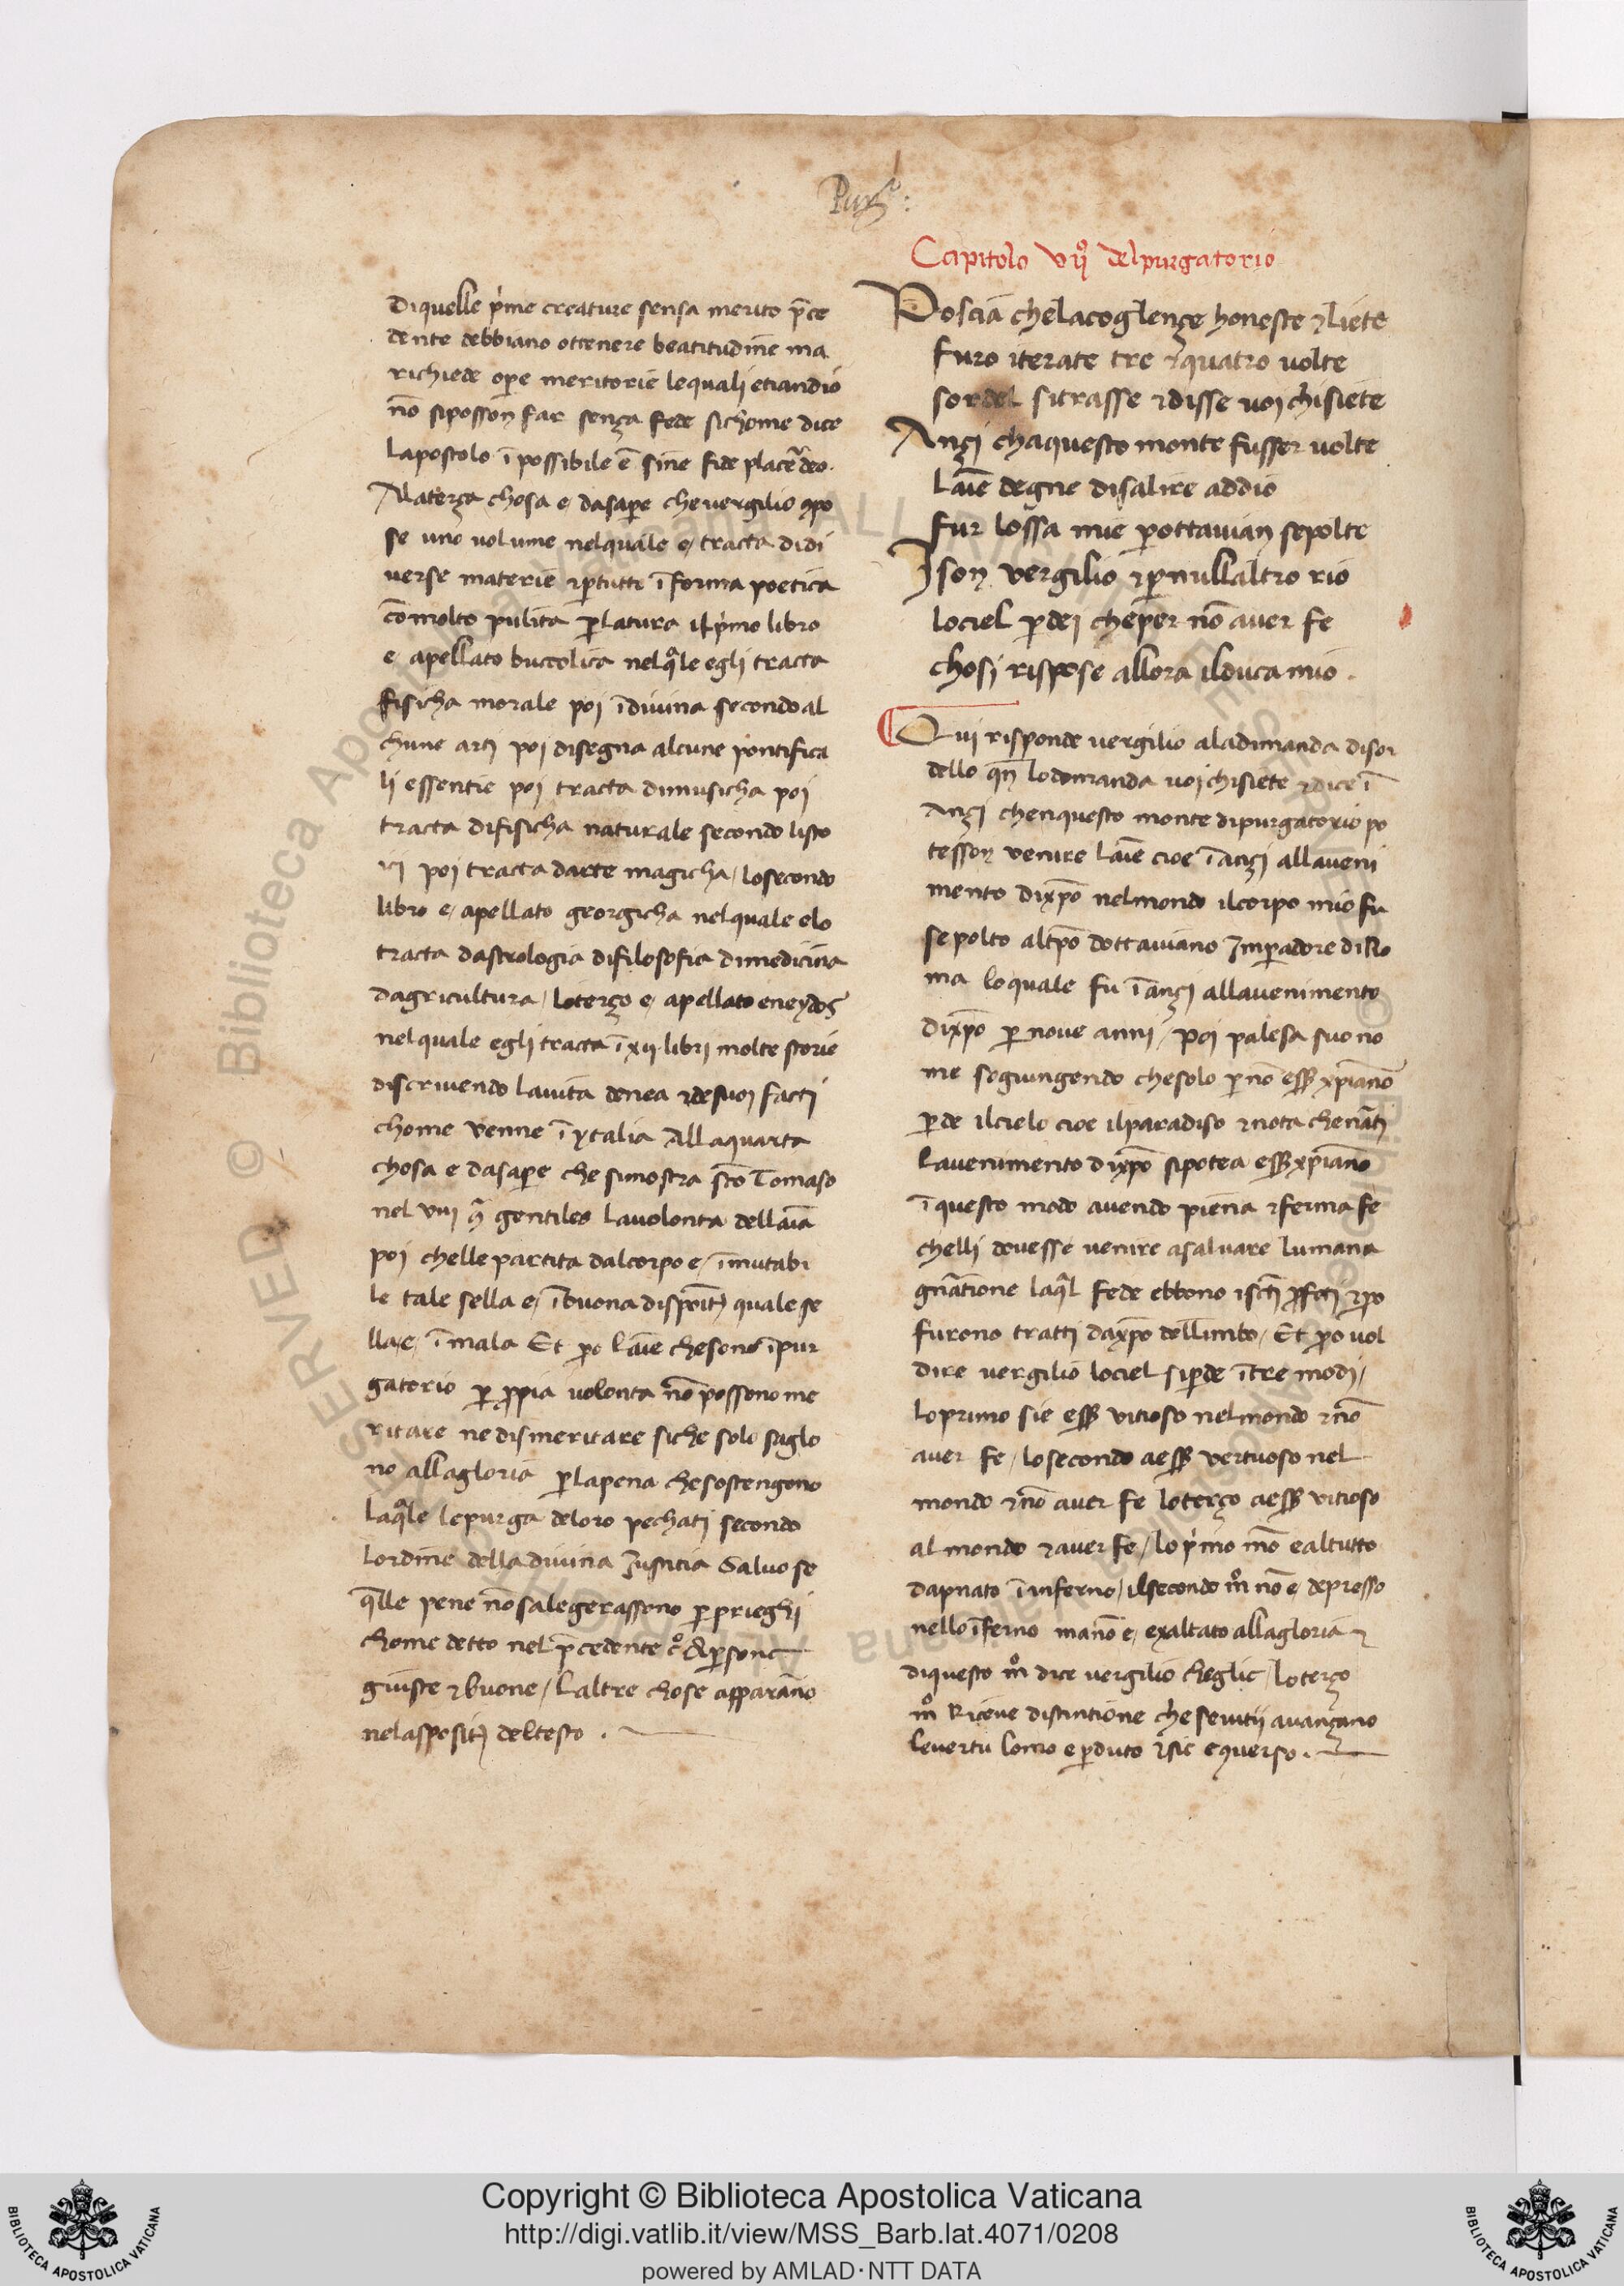 Purgo:
diquelle p'ime creature sensa merito p̄ce
dente debbiano ottenere beatitudine ma
richiede ope meritorie lequali etiandio
nō siposson far senza fede sichome dice
lapostolo ī possibile ē sine fide placere deo.
Alaterza chosa e, dasape che vergilio ꝯpo
se uno volume nelquale e, tracta didi
verse materie ⁊ ꝑ tutti ī forma poetica
cō molto pulita ꝑlatura ilp'imo libro
e apellato buccolica nelqᵃle egli tracta
fisicha morale poi ī divina secondo al
chune arti poi disegna alcune pontifica
li essentie poi tracta dimusicha poi
tracta difisicha naturale secondo listo
ici poi tracta darte magicha, losecondo
libro e, apellato georgicha nelquale elo
tracta dastrologia difilosofia dimedicina
dagricultura, loterzo e, apellato eneydos
nelquale egli tracta ī xij libri molte storie
discrivendo lavita denea ⁊ desuoi facti
chome venne ī ytalia Allaquarta
chosa e dasape che simostra sc̄o Tomaso
nel viij ꝯᵃ gentiles lavolonta dellaīa
poi chelle partita dalcorpo e, īmutabi
le tale sella e, ī buona dispoīt̄ quale se
lla e, ī mala Et ꝑo laīe chesono īpur
gatorio ꝑ ꝓpia volonta nō possono me
ritare ne dismeritare siche solo saglo
no allagloria ꝑ lapena chesostengono
laqᵃle lepurga deloro pechati secondo
lordine delladivina Justicia Salvo se
qᵉlle pene nō salegerassono ꝑ prieghi
chome detto nel p̄cedente cº di ꝑsone
giuste ⁊ buone, laltre chose appararāno
nelaspositō deltesto.
Capitolo vijº delpurgatorio
Poscia chelacoglenze honeste ⁊ liete
furo iterate tre ⁊ quatro volte
sordel sitrasse ⁊ disse voi chisiete
Anzi chaquesto monte fusser volte
laīe degne disalire addio
fur lossa mie ꝑ ottavian sepolte
Ison vergilio ⁊ ꝑ nullaltro rio
lociel ꝑdei cheper nō aver fe
chosi rispose allora ilduca mio.
Qui risponde vergilio aladimanda disor
dello qn̄ lodomanda voi chisiete ⁊ dice ī
anzi chenquesto monte dipurgatorio po
tesson venire laīe cioe ī anzi allaveni
mento dixp̄o nelmondo ilcorpo mio fu
sepolto altp̄o dottaviano Impadore diRo
ma loquale fu ī anzi allavenimento
dixp̄o ꝑ nove anni, poi palesa suo no
me sogiungendo chesolo ꝑ nō ess̄ xp̄iano
ꝑde ilcielo cioe ilparadiso ⁊ nota chenāti
lavenimento dixp̄o sipotea ess̄ xp̄iano
ī questo modo avendo piena ⁊ ferma fe
chelli dovesse venire asalvare lumana
gn̄atione laqᵃl fede ebbono isc̄i ꝓfeti ⁊ ꝑo
furono tratti daxp̄o dellimbo, Et ꝑo vol
dire vergilio lociel siꝑde ī tre modi,
loprimo sie ess̄ vitioso nelmondo ⁊ nō
aver fe, losecondo aess̄ vertuoso nel
mondo ⁊ nō aver fe loterzo aess̄ vitioso
al mondo ⁊ aver fe, lop'imo mō ealtutto
dapnato ī inferno, ilsecondo mº nō e, depresso
nello īferno ma nō e, exaltato allagloria ⁊
diquesto mº dice vergilio cheglie, loterzo
mº Riceve distintione che sevitij avanzano
levertu lomo e ꝑduto ⁊ sic eꝯverso.
Copyright © Biblioteca Apostolica Vaticana
http://digi.vatlib.it/view/MSS_Barb.lat.4071/0208
powered by AMLAD·NTT DATA